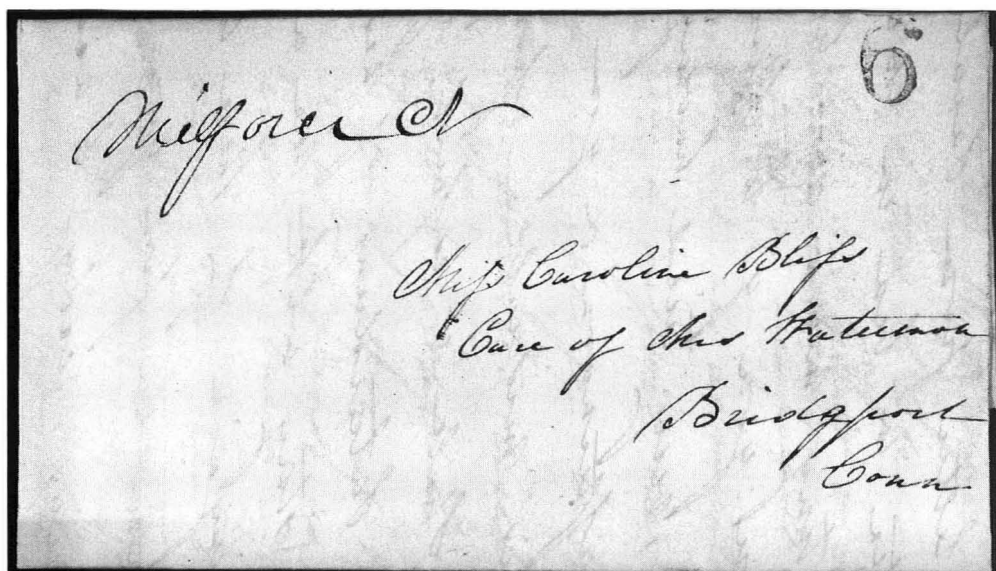 6
Milford Ct
Miss Caroline Bliss
Care of Mrs Waterman
Bridgport
Conn